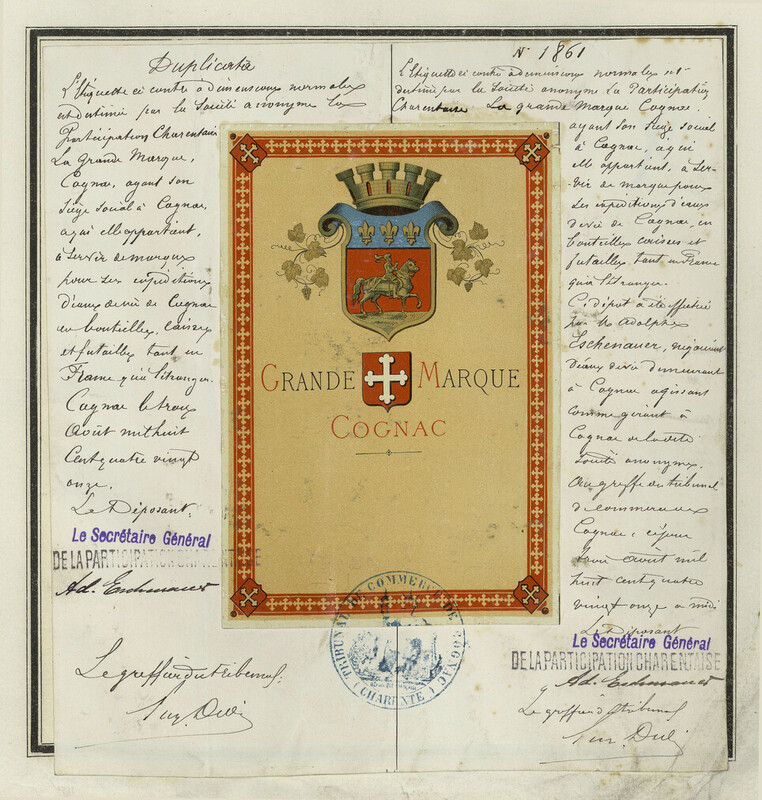 Duplicata
L'Etiquette ci contre à dimensions normales
est destinée par la Société anonyme La
Participation Charentaise
La Grande Marque,
Cognac, ayant son
siège social à Cognac,
à qui elle appartient,
à servir de marque
pour ses expéditions
d'eaux de vie de Cognac
en bouteilles, caisses
et futailles tant en
France qu'à l'étranger.
Cognac le trois
Août mil huit
cent quatre vingt
onze.
Le Déposant.
Le Secrétaire Général
DE LA PARTICIPATION CHARENTAISE
Ad. Eschenauer
Le greffier du tribunal.
GRANDE MARQUE
COGNAC
TRIBUNAL DE COMMERCE DE COGNAC
(CHARENTE)
N° 1861
L'Etiquette ci contre à dimensions normales est
destinée par la Société anonyme La Participation
Charentaise La grande Marque Cognac.
ayant son siège social
à Cognac, à qui
elle appartient, à ser-
vir de marque pour
ses expéditions d'eaux
de vie de Cognac, en
bouteilles caisses et
futailles tant en France
qu'à l'étranger.
Ce dépôt a été effectué
par Mr Adolphe
Eschenauer, négociant
d'eaux de vie demeurant
à Cognac agissant
comme gérant à
Cognac de la dite
Société anonyme.
Au greffe du tribunal
de commerce de
Cognac, ce jour
trois août mil
huit cent quatre
vingt onze à midi
Le Déposant
Le Secrétaire Général
DE LA PARTICIPATION CHARENTAISE
Ad. Eschenauer
Le greffier du tribunal